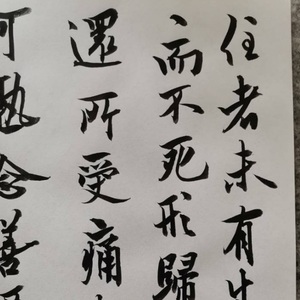 住者未有生
而不死形歸
還所受痛
可執念善